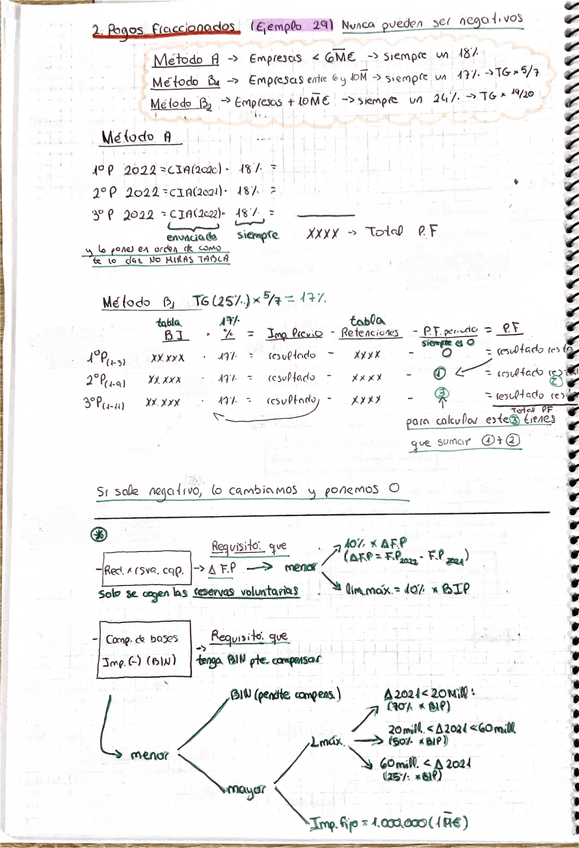 2. Pagos Fraccionados (Ejemplo 29) Nunca pueden ser negativos
Método A → Empresas < 6M€ → siempre un 18%
Método B1 → Empresas entre 6 y 10M → siempre un 17% → TG × 5/7
Método B2 → Empresas + 10M€ → siempre un 24% → TG × 19/20
Método A
1º P 2022 = CIA(2020) · 18% =
2º P 2022 = CIA(2021) · 18% =
3º P 2022 = CIA(2022) · 18% =
enunciado siempre XXXX → Total P.F
y lo pones en orden de como
te lo dan NO MIRAS TABLA
Método B1 TG (25%) × 5/7 = 17%
tabla 17% tabla
BI · % = Imp. Previo - Retenciones - P.F. periodo = P.F
siempre es 0
1ºP(1-3) XX.XXX · 17% = resultado - XXXX - 0 = resultado
2ºP(1-9) XX.XXX · 17% = resultado - XXXX - ① = resultado
②
3ºP(1-11) XX.XXX · 17% = resultado - XXXX - ③ = resultado
Total PF
para calcular este ③ tienes
que sumar ① + ②
Si sale negativo, lo cambiamos y ponemos 0
*
- Red. × rsva. cap. → Requisito: que Δ F.P → menor
10% × Δ F.P
(ΔF.P = F.P2022 - F.P2021)
lim. máx. = 10% × BIP
solo se cogen las reservas voluntarias
- Comp. de bases
Imp. (-) (BIN)
→ Requisito: que
tenga BIN pte. compensar
menor
BIN (pendte compens.)
mayor
Lmáx.
Δ 2021 < 20 Mill:
(70% × BIP)
20 mill. < Δ 2021 < 60 mill.
(50% × BIP)
60 mill. < Δ 2021
(25% × BIP)
Imp. Fijo = 1.000.000 (1M€)